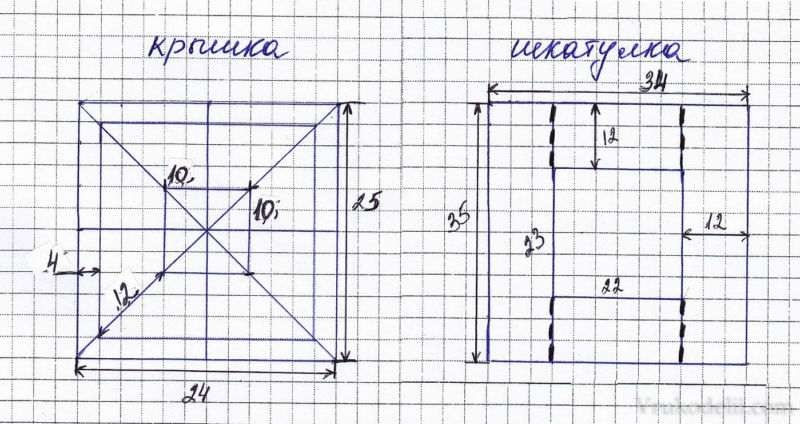 крышка
шкатулка
10
10
25
4
12
24
34
12
35
23
12
22
Vrukodelii.com